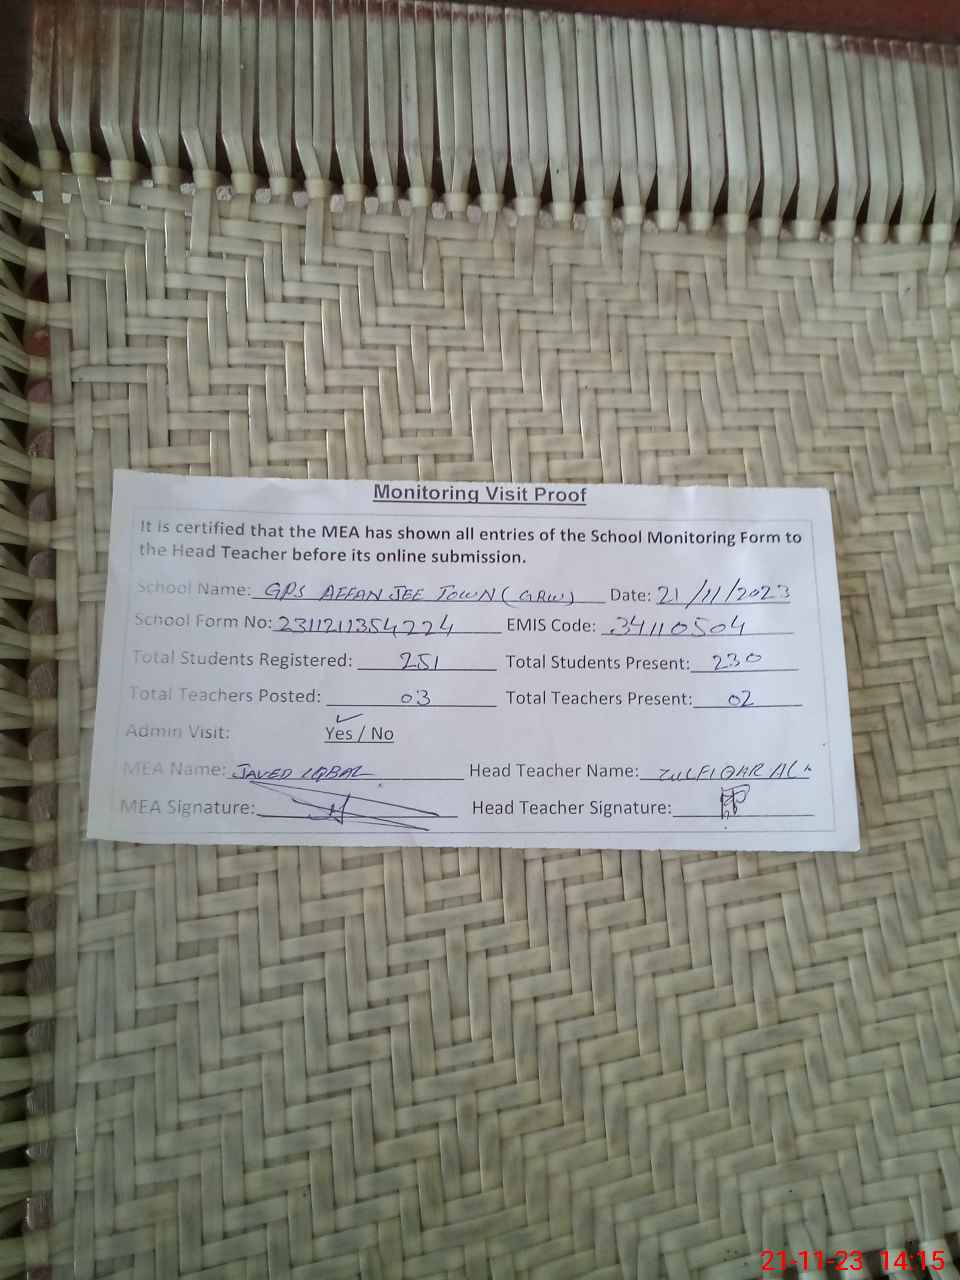 Monitoring Visit Proof
It is certified that the MEA has shown all entries of the School Monitoring Form to
the Head Teacher before its online submission.
School Name: GPS AFFAN JEE TOWN (GRW) Date: 21/11/2023
School Form No: 2311211354224 EMIS Code: 34110504
Total Students Registered: 251 Total Students Present: 230
Total Teachers Posted: 03 Total Teachers Present: 02
Admin Visit: Yes / No
MEA Name: JAVED IQBAL Head Teacher Name: ZULFIQAR ALI
MEA Signature: Head Teacher Signature:
21-11-23 14:15